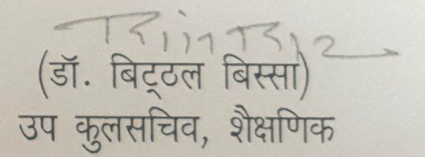 (डॉ. बिट्ठल बिस्सा)
उप कुलसचिव, शैक्षणिक